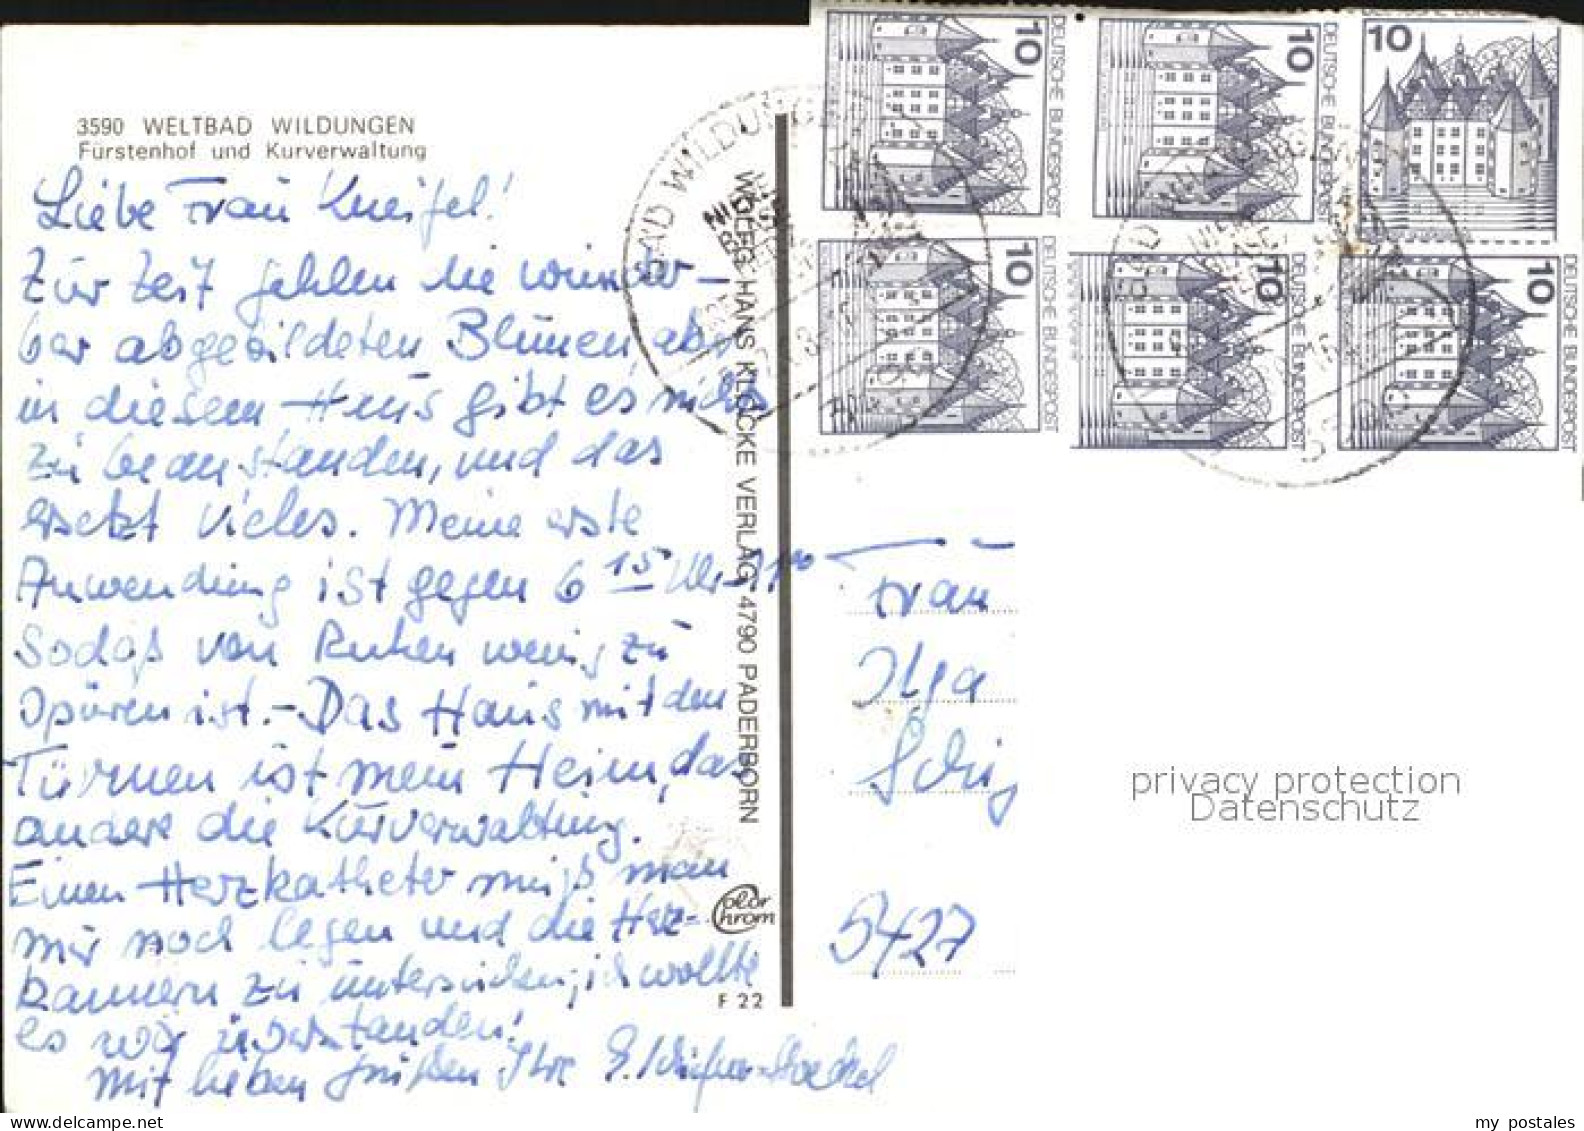 3590 WELTBAD WILDUNGEN
Fürstenhof und Kurverwaltung
Liebe Frau Kneifel!
Zur Zeit fehlen die wunder-
bar abgebildeten Blumen aber
in diesem Haus gibt es nichts
zu beanstanden, und das
ersetzt vieles. Meine erste
Anwendung ist gegen 6 15 Uhr
sodaß von Ruhen wenig zu
spüren ist. - Das Haus mit den
Türmen ist mein Heim, das
andere die Kurverwaltung.
Einen Herzkatheter muß man
mir noch legen und die Herz-
kammern zu untersuchen; ich wollte
es wär überstanden!
Mit lieben Grüßen Ihre E.
WOLFG. HANS KLOCKE VERLAG, 4790 PADERBORN
Color
Chrom
F 22
10 DEUTSCHE BUNDESPOST
10 DEUTSCHE BUNDESPOST
10
10 DEUTSCHE BUNDESPOST
10 DEUTSCHE BUNDESPOST
10 DEUTSCHE BUNDESPOST
BAD WILDUNGEN
Frau
Olga
5427
privacy protection
Datenschutz
my postales